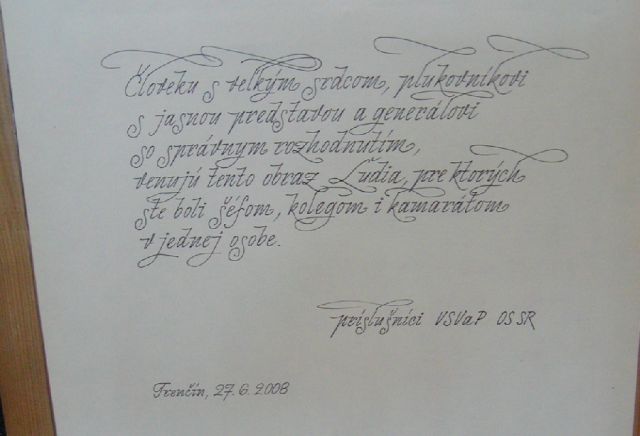 Človeku s veľkým srdcom, plukovníkovi
s jasnou predstavou a generálovi
so správnym rozhodnutím,
venujú tento obraz Ľudia, pre ktorých
ste boli šéfom, kolegom i kamarátom
v jednej osobe.
príslušníci VSVaP OS SR
Trenčín, 27.6.2008